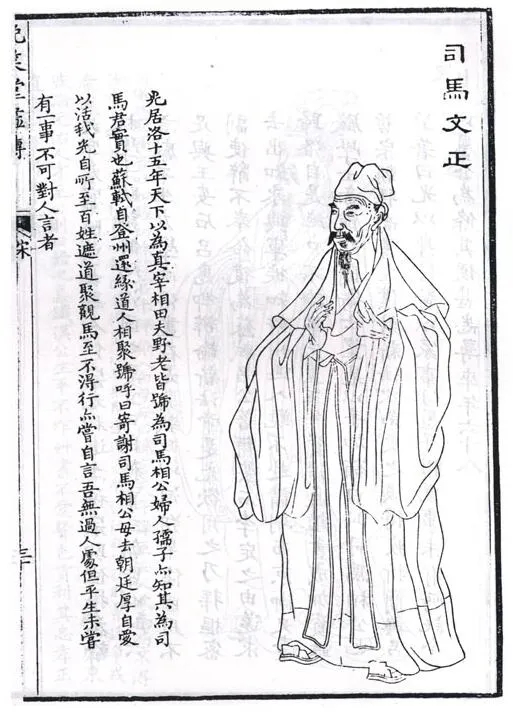 司馬文正
光居洛十五年天下以為真宰相田夫野老皆號為司馬相公婦人孺子亦知其為司
馬君實也蘇軾自登州還緣道人相聚號呼曰寄謝司馬相公毋去朝廷厚自愛
以活我光自所至百姓遮道聚觀馬至不得行亦嘗自言吾無過人處但平生未嘗
有一事不可對人言者
晚笑堂畫傳
宋